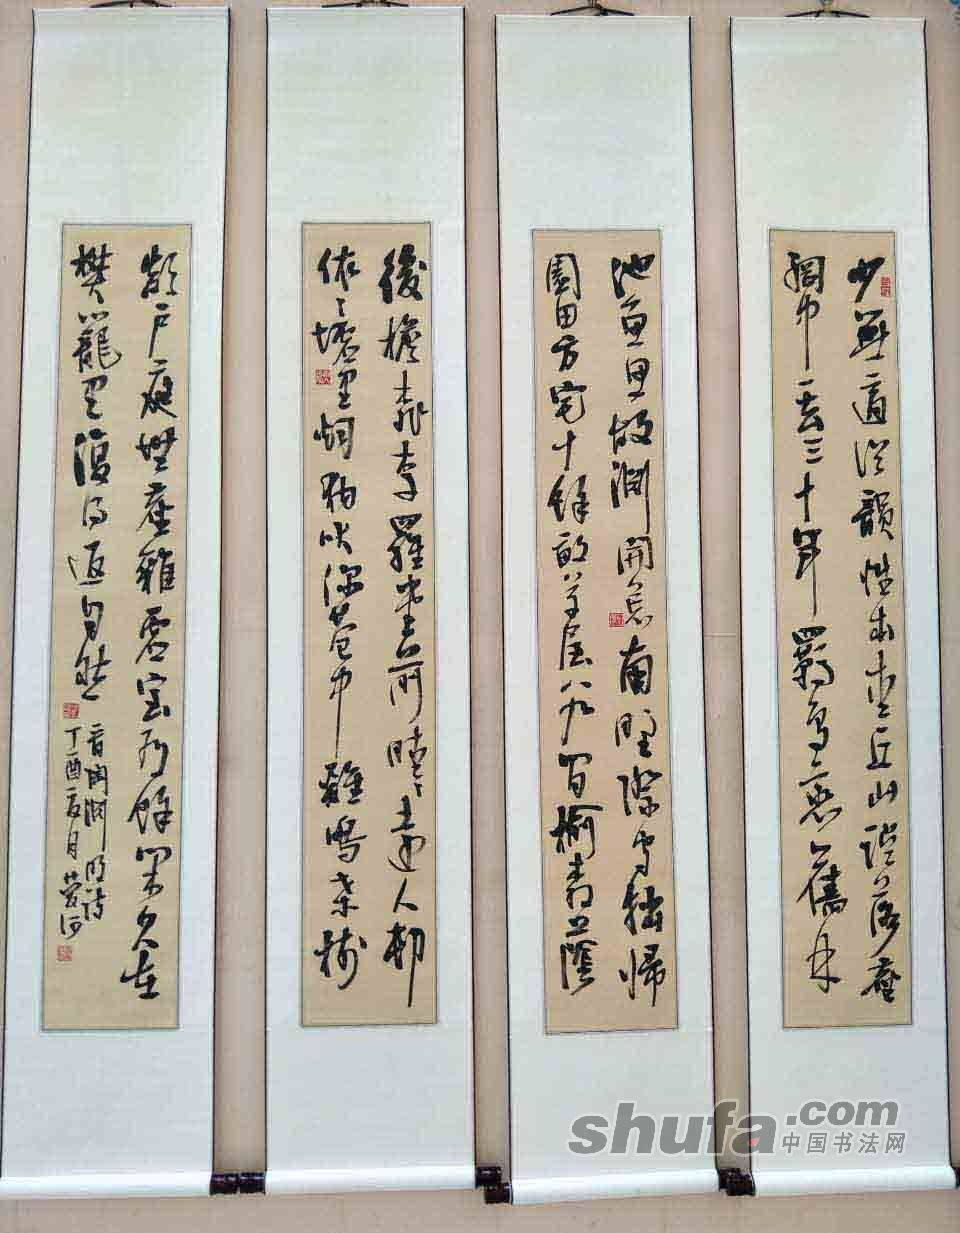 少無適俗韻性本愛丘山誤落塵
網中一去三十年羈鳥戀舊林
池魚思故淵開荒南野際守拙歸
園田方宅十餘畝草屋八九間榆柳蔭
後檐桃李羅堂前曖〻遠人村
依〻墟里烟狗吠深巷中雞鳴桑樹
顛戶庭無塵雜虛室有餘閑久在
樊籠里復得返自然
晉陶淵明詩
丁酉夏月
shufa.com
中国书法网